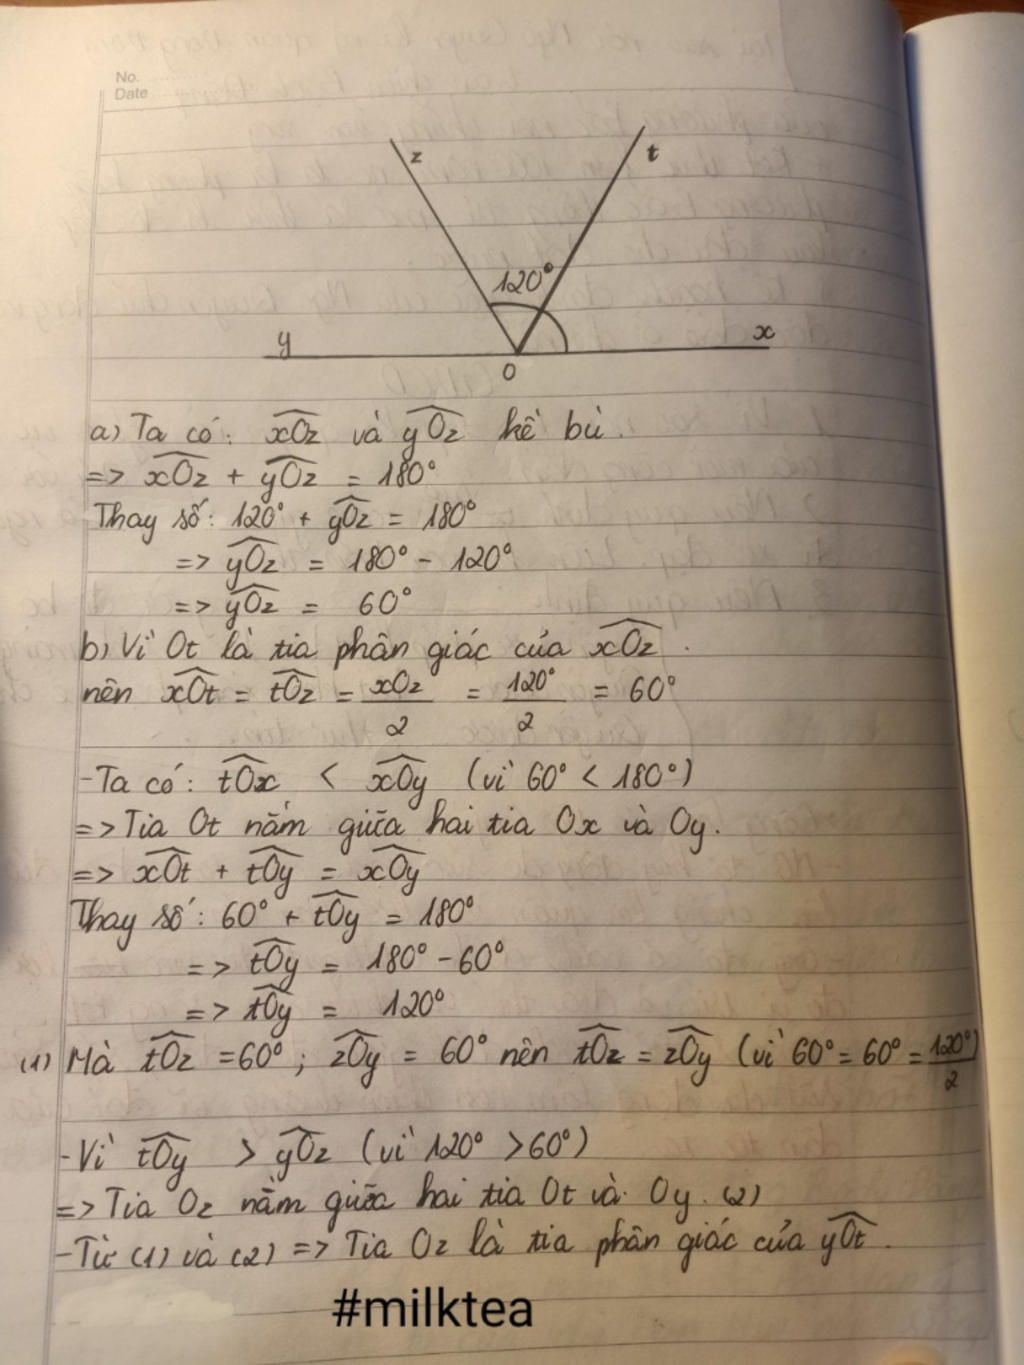 No.
Date
z
t
120°
y
x
O
a) Ta có: xOz và yOz kề bù.
=> xOz + yOz = 180°
Thay số: 120° + yOz = 180°
=> yOz = 180° - 120°
=> yOz = 60°
b) Vì Ot là tia phân giác của xOz.
nên xOt = tOz = xOz/2 = 120°/2 = 60°
- Ta có: tOx < xOy (vì 60° < 180°)
=> Tia Ot nằm giữa hai tia Ox và Oy.
=> xOt + tOy = xOy
Thay số: 60° + tOy = 180°
=> tOy = 180° - 60°
=> tOy = 120°
(1) Mà tOz = 60°; zOy = 60° nên tOz = zOy (vì 60° = 60° = 120°/2)
- Vì tOy > yOz (vì 120° > 60°)
=> Tia Oz nằm giữa hai tia Ot và Oy. (2)
- Từ (1) và (2) => Tia Oz là tia phân giác của yOt.
#milktea